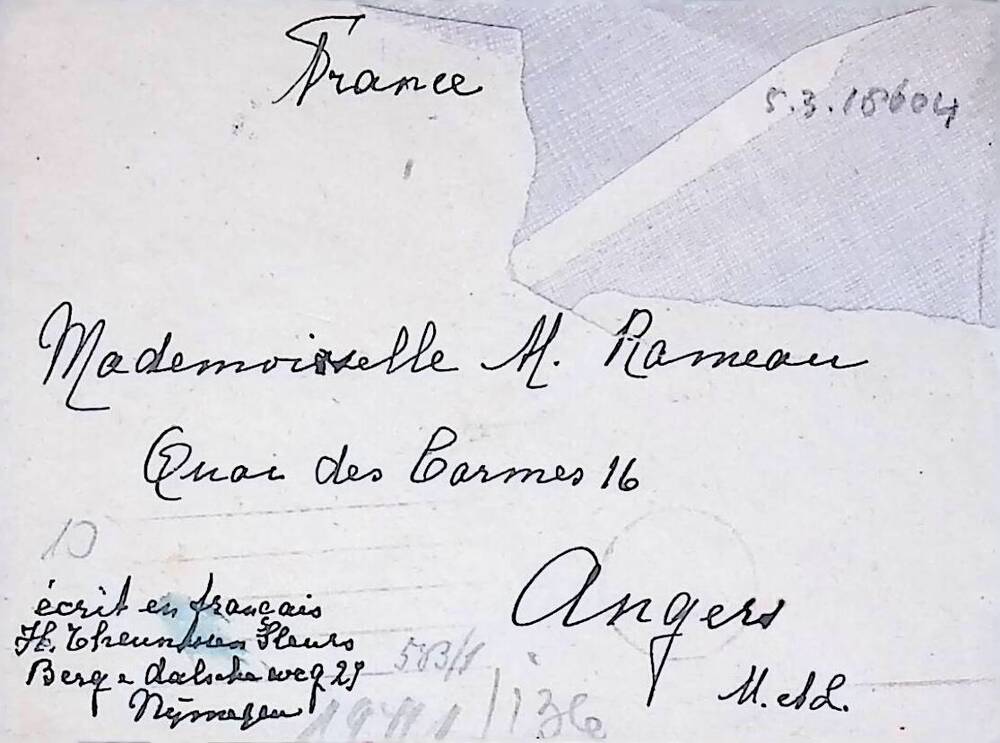 France
5.3.18604
Mademoiselle M. Rameau
Quai des Carmes 16
10
Angers
écrit en français
H. Theunissen Sleurs
Berg e dalsche weg 29
583/1
M. et L.
Nÿmegen
1941/136